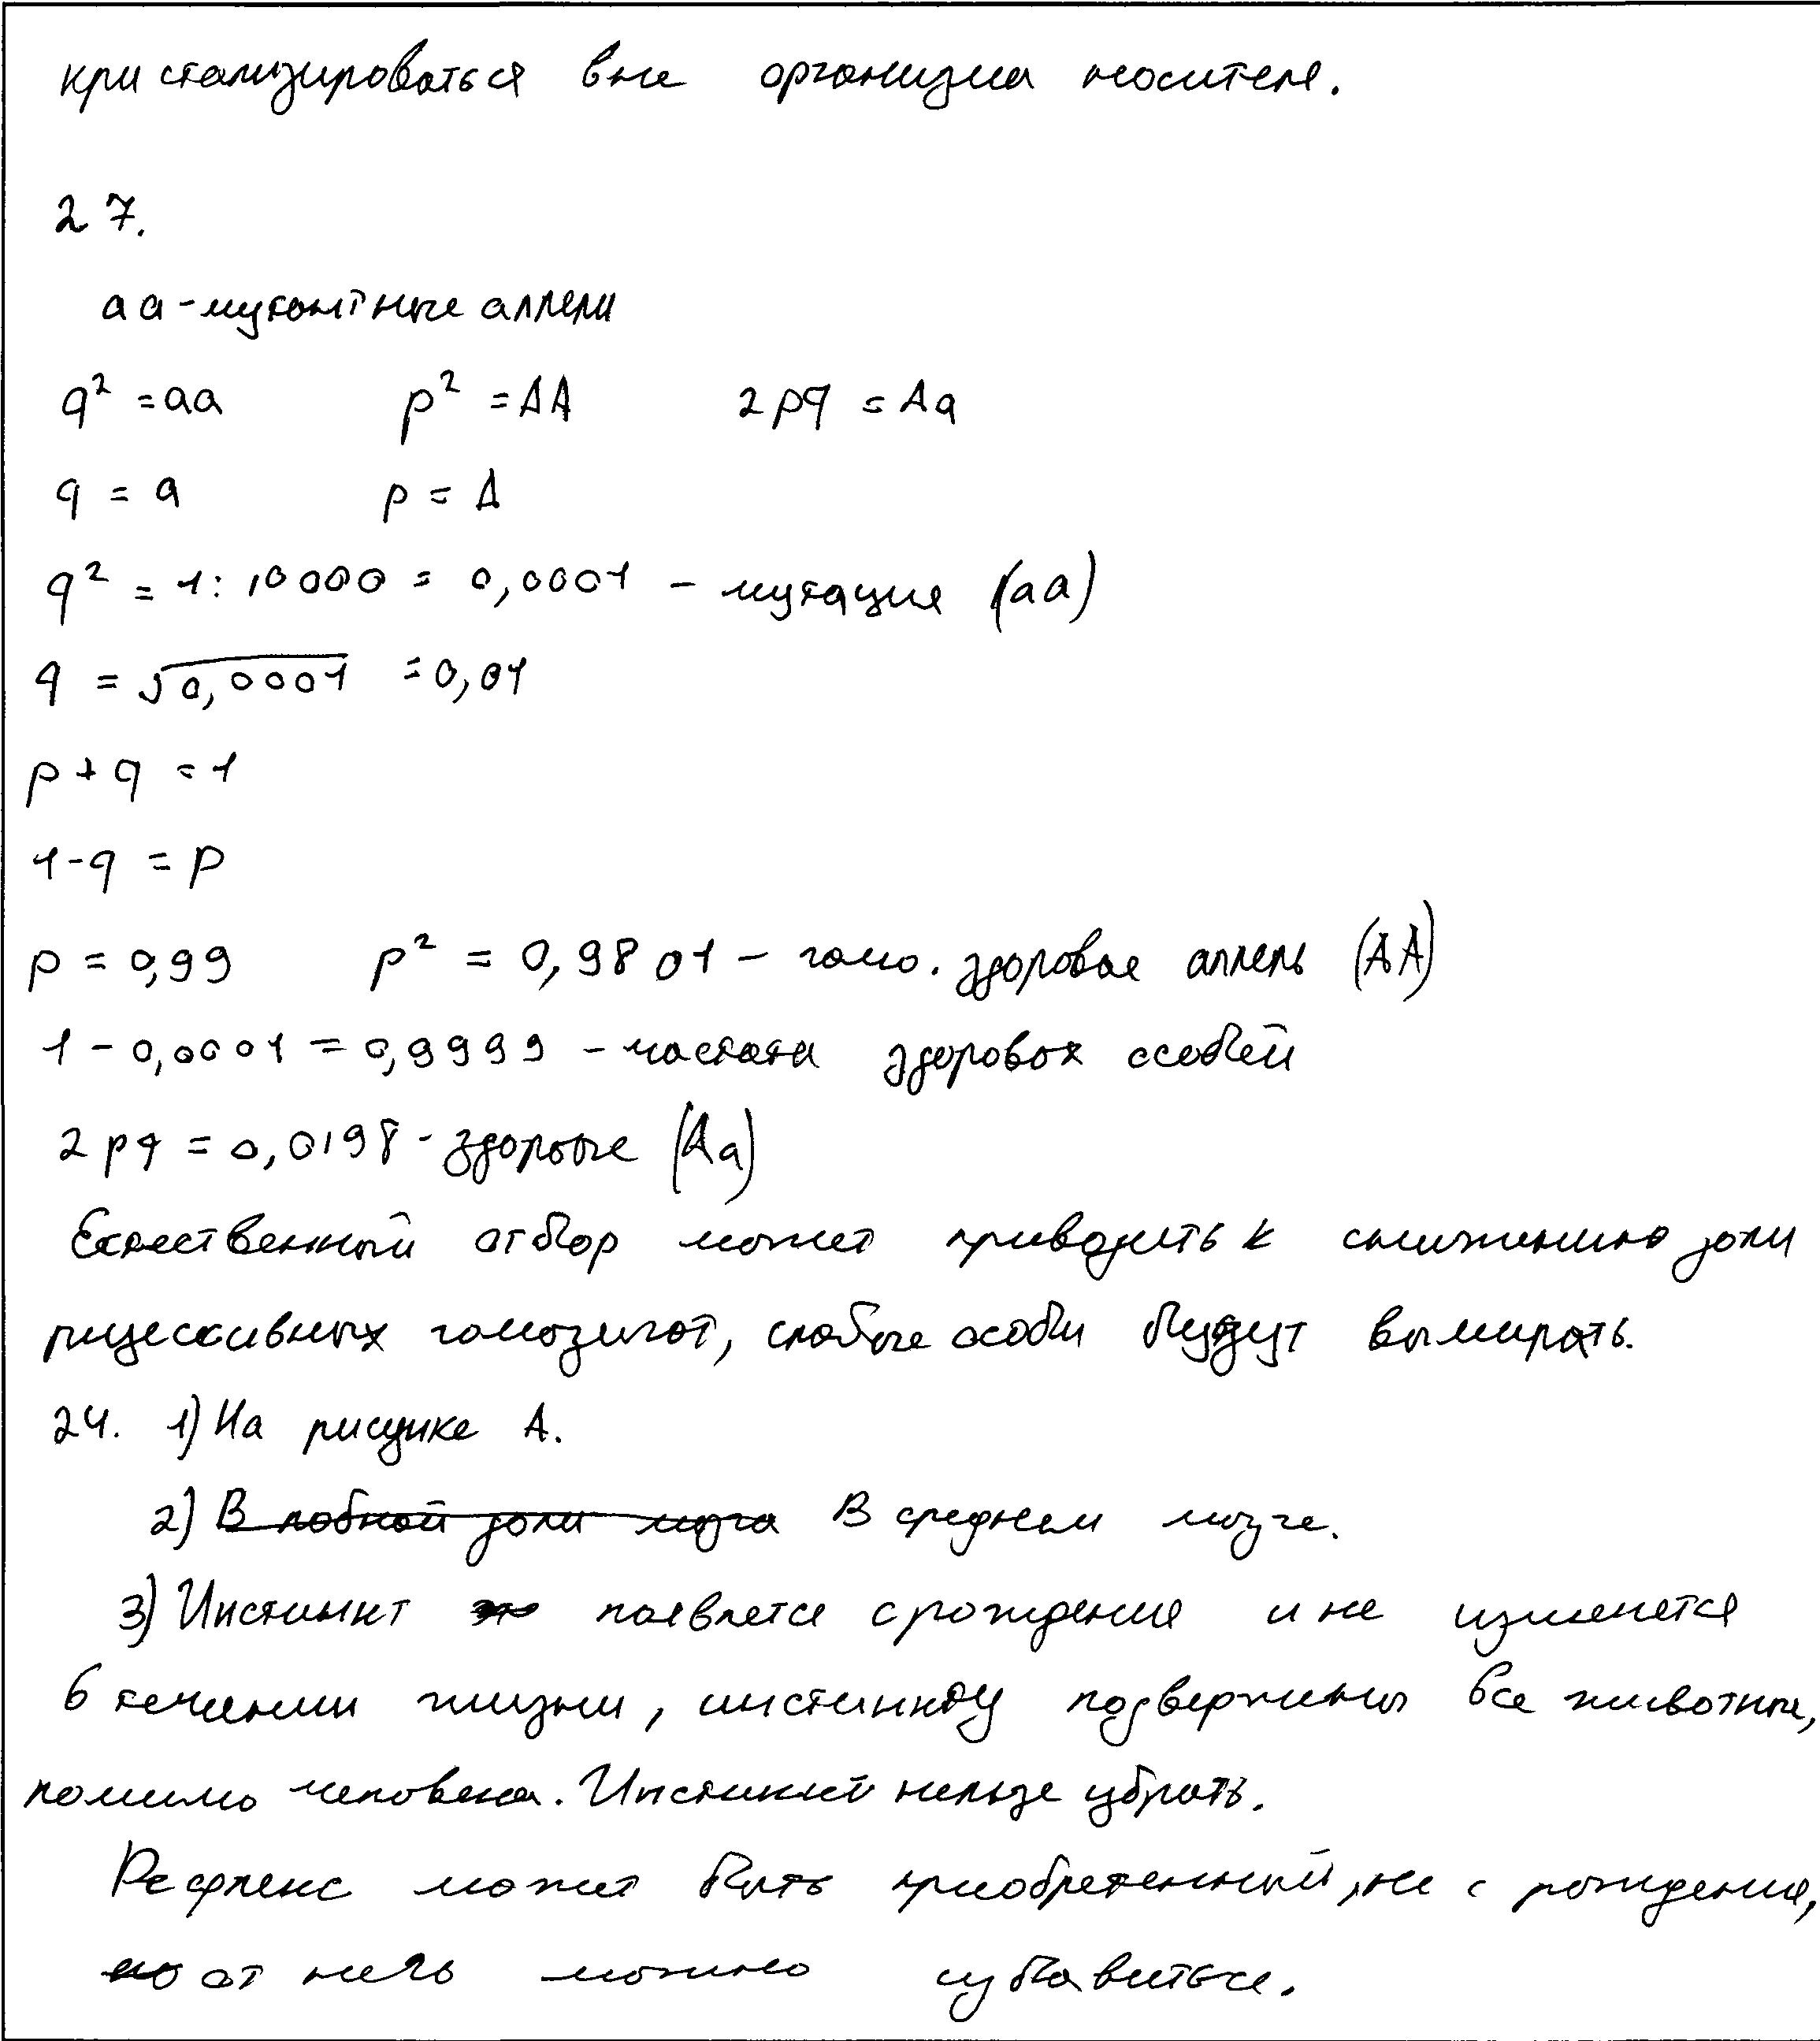 кристализироваться вне организма носителя.
27.
аа - мутантные аллели
q² = аа p² = АА 2pq = Аа
q = а p = А
q² = 1 : 10000 = 0,0001 - мутация (аа)
q = √0,0001 = 0,01
p + q = 1
1 - q = p
p = 0,99 p² = 0,9801 - гомо. здоровая аллель (АА)
1 - 0,0001 = 0,9999 - частота здоровых особей
2pq = 0,0198 - здоровые (Аа)
Естественный отбор может приводить к снижению доли
рицессивных гомозигот, слабые особи будут вымирать.
24. 1) На рисунке А.
2) В лобной доли мозга В среднем мозге.
3) Инстинкт это появляется с рождения и не изменется
в течении жизни, инстинкту подвержины все животные,
помимо человека. Инстинкт нельзя убрать.
Рефлекс может быть приобретенный, не с рождения,
но от него можно избавиться.